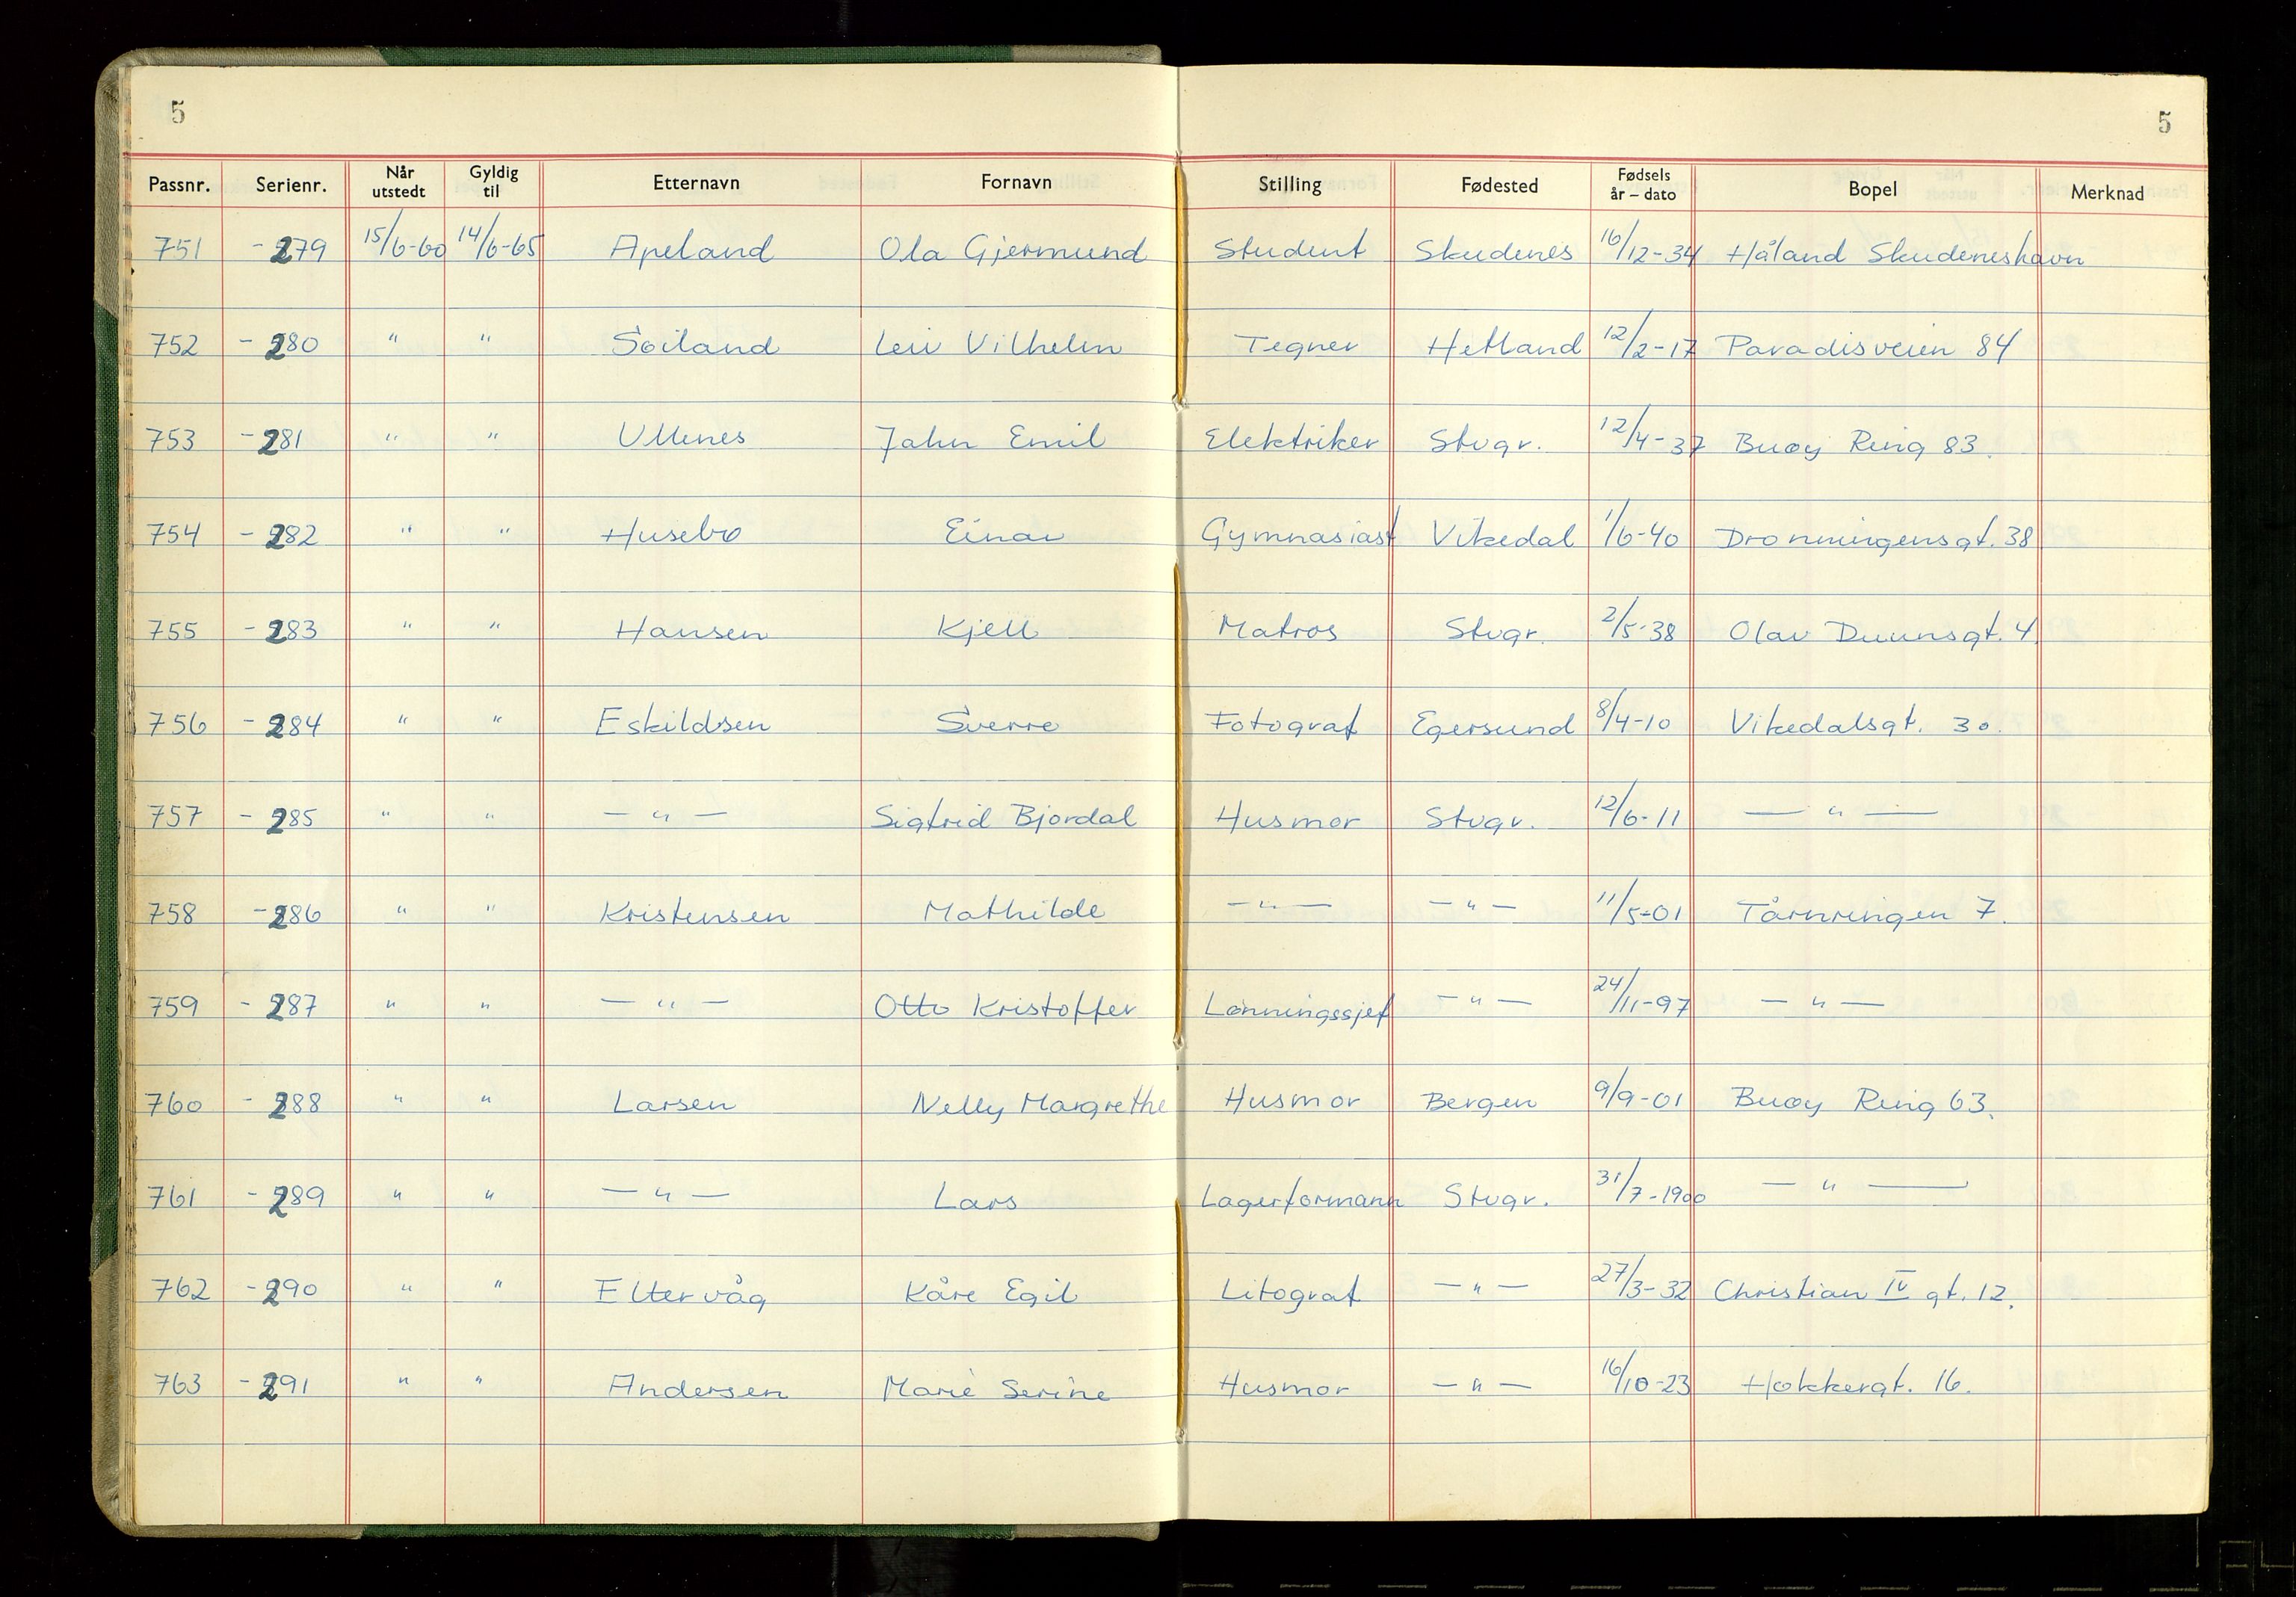 5 5
Passnr. Serienr. Når utstedt Gyldig til Etternavn Fornavn Stilling Fødested Fødsels år – dato Bopel Merknad
751 - 279 15/6-60 14/6-65 Apeland Ola Gjermund Student Skudenes 16/12-34 Håland Skudeneshavn
752 - 280 " " Soiland Leiv Vilhelm Tegner Hetland 12/2-17 Paradisveien 84
753 - 281 " " Ullenes Jahn Emil Elektriker Stvgr. 12/4-37 Buøy Ring 83.
754 - 282 " " Husebø Einar Gymnasiast Vikedal 1/6-40 Dronningensgt. 38
755 - 283 " " Hansen Kjell Matros Stvgr. 2/5-38 Olav Duunsgt. 4.
756 - 284 " " Eskildsen Sverre Fotograf Egersund 8/4-10 Vikedalsgt. 30.
757 - 285 " " — " — Sigfrid Bjordal Husmor Stvgr. 12/6-11 — " —
758 - 286 " " Kristensen Mathilde — " — — " — 11/5-01 Tårnringen 7.
759 - 287 " " — " — Otto Kristoffer Lønningssjef — " — 24/11-97 — " —
760 - 288 " " Larsen Nelly Margrethe Husmor Bergen 9/9-01 Buøy Ring 63.
761 - 289 " " — " — Lars Lagerformann Stvgr. 31/7-1900 — " —
762 - 290 " " Eltervåg Kåre Egil Litograf — " — 27/3-32 Christian IV gt. 12.
763 - 291 " " Andersen Marie Serine Husmor — " — 16/10-23 Hokkergt. 16.